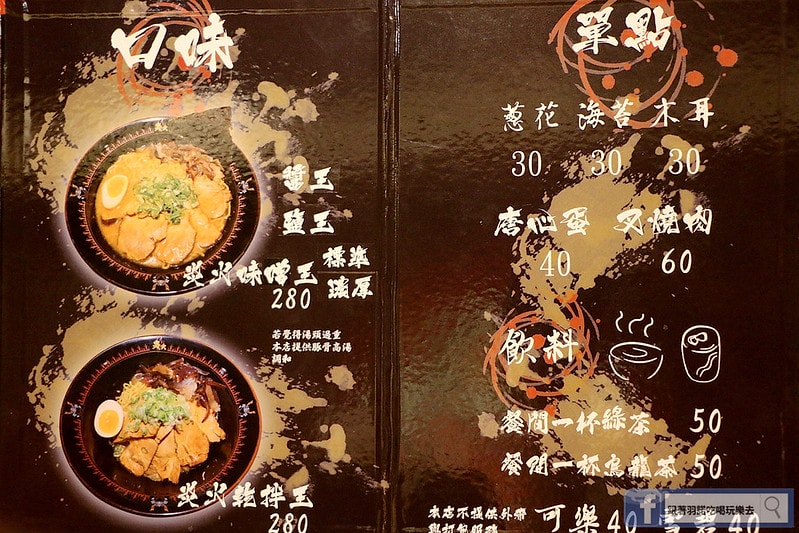 口味
醬王
鹽王
炎火味噌王
標準
濃厚
280
若覺得湯頭過重
本店提供豚骨高湯
調和
炎火乾拌王
280
單點
蔥花 海苔 木耳
30 30 30
溏心蛋 叉燒肉
40 60
飲料
餐間一杯綠茶 50
餐間一杯烏龍茶 50
本店不提供外帶
與打包服務
可樂40 雪碧40
f 跟著羽諾吃喝玩樂去